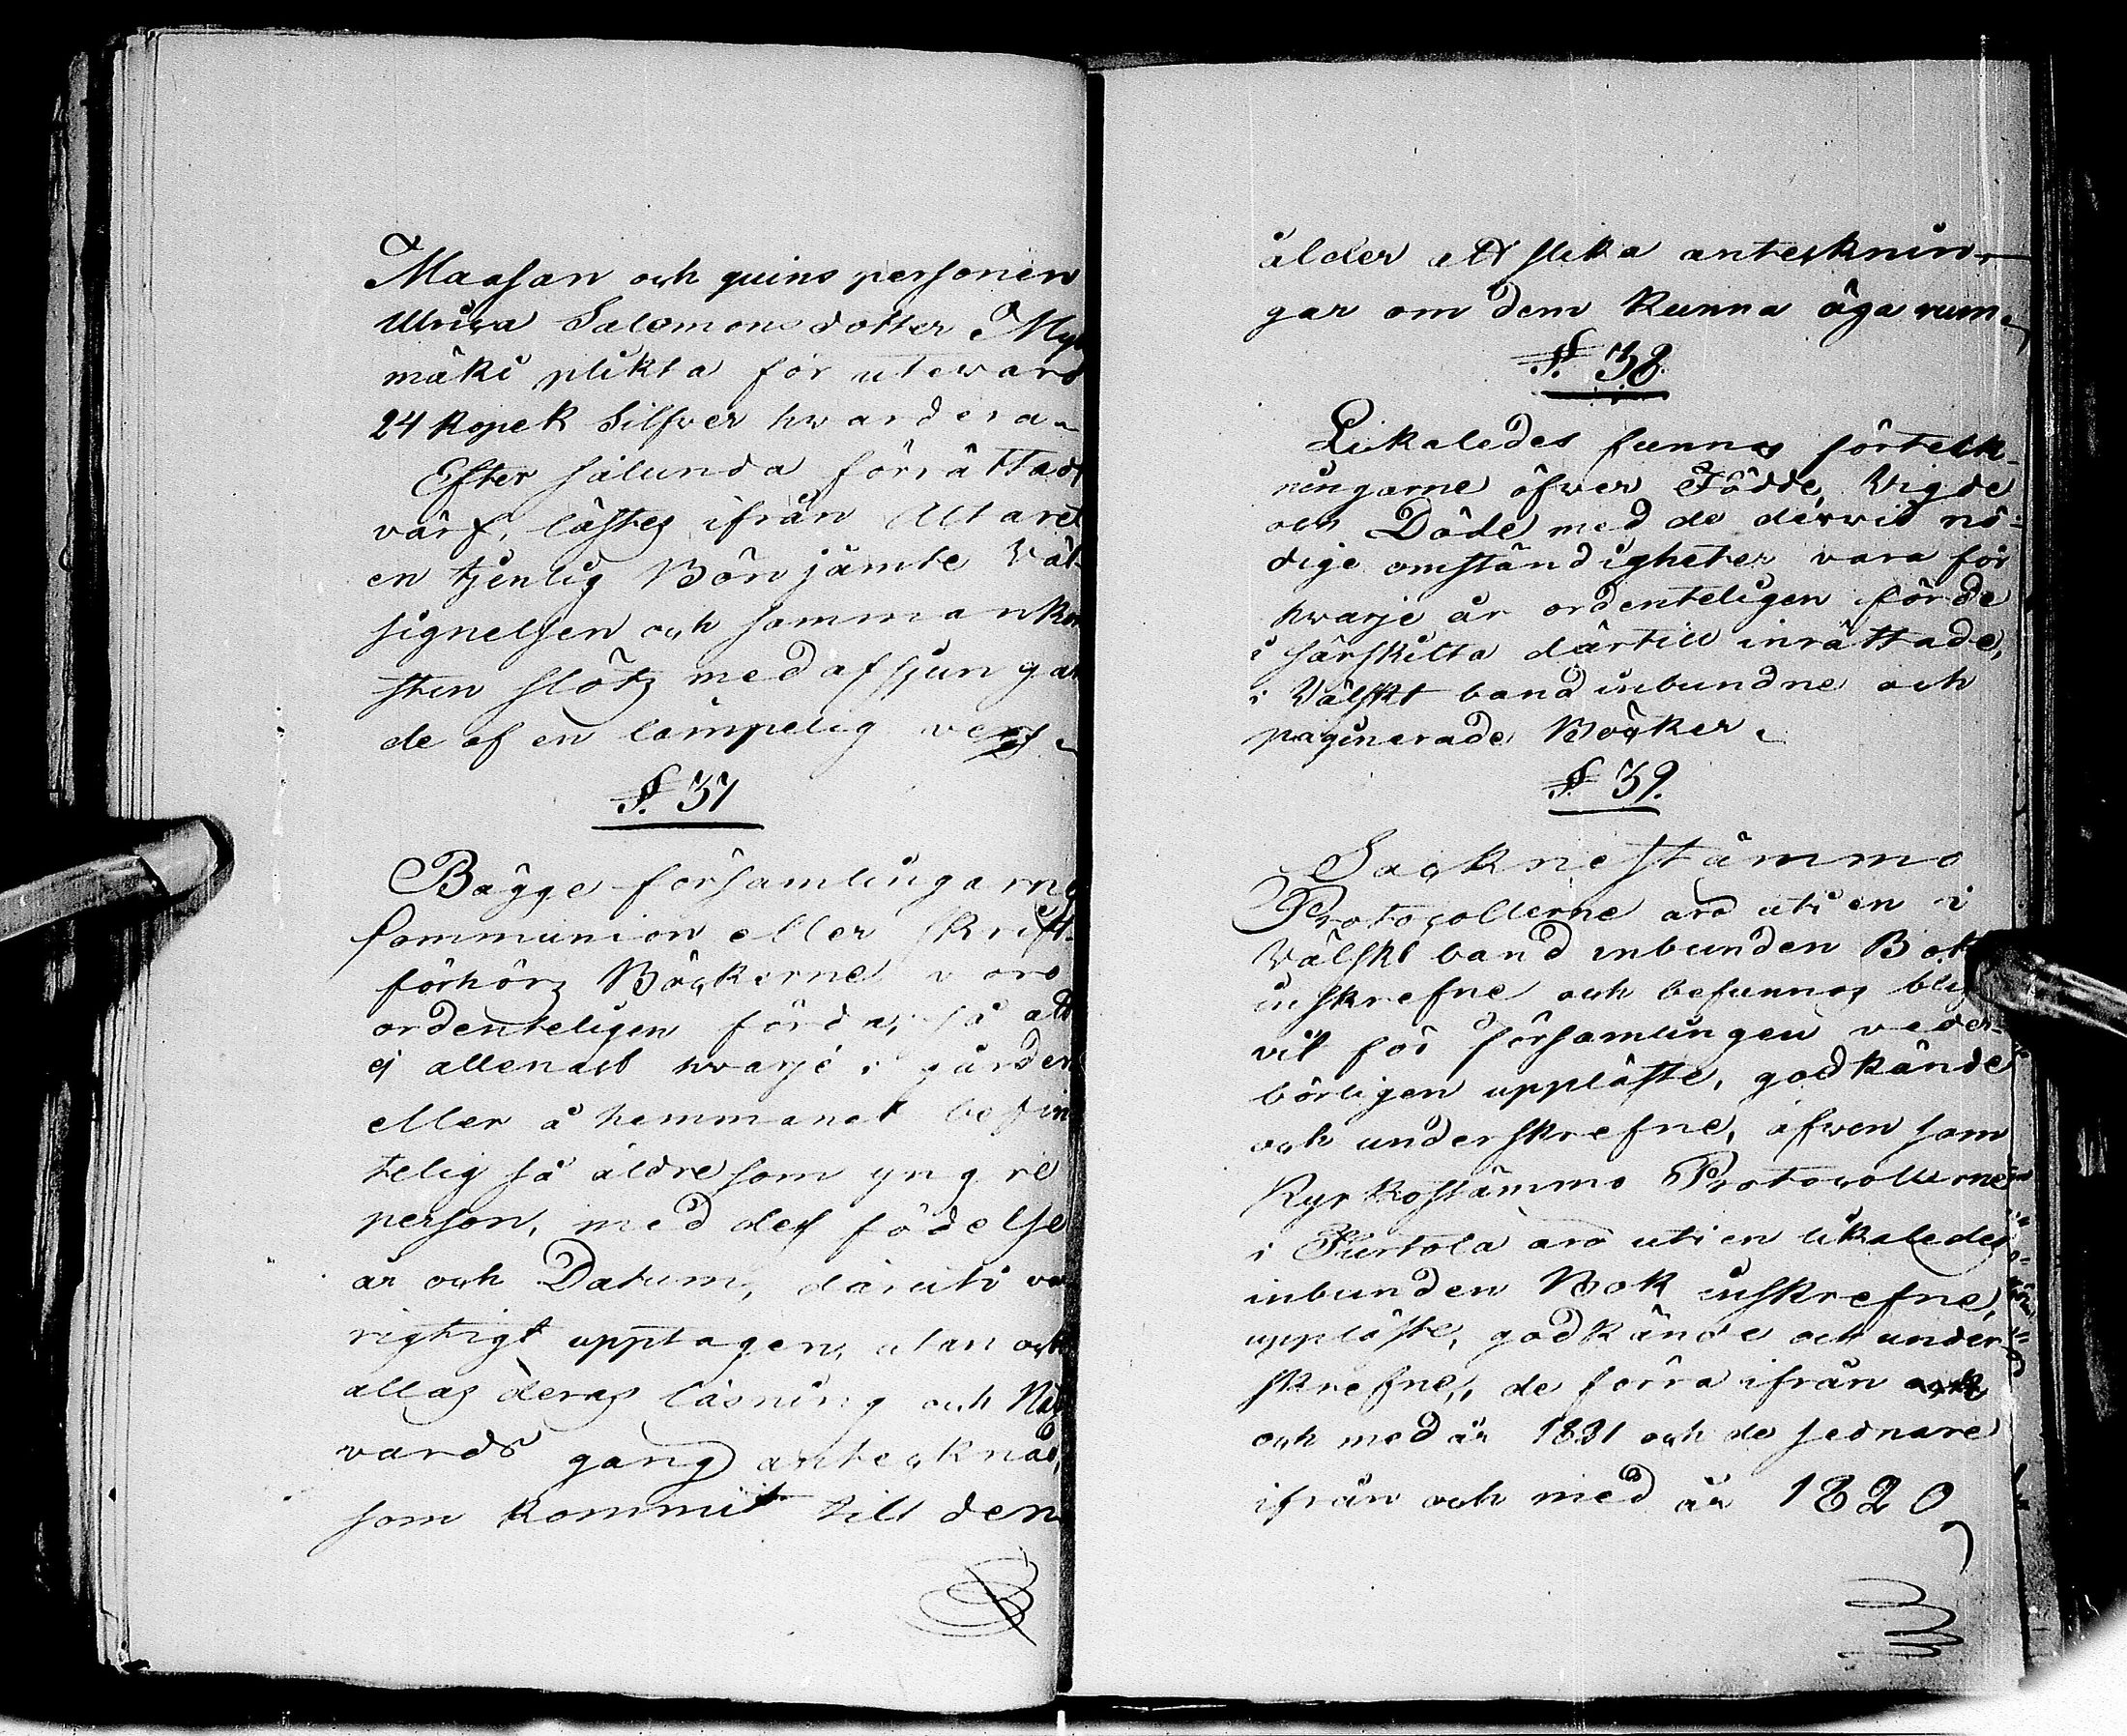 Maasan och quins personen
Ulrica Salomons dotter My
mäki plikta för utewaro
24 Kopek Silfwer hwardera
Efter sålunda förrättad
värf, lästes ifrån Altaret
en tjenlig Bön jämte Väl-
signelsen och samman kom
sten slöts med afsjungan
de af en lämpelig vers
§. 37
Bägge församlingarne
Communion eller Skrift-
förhörs Böckerne voro
ordenteligen förda, så att
ej allenast hwarje i gården
eller å hemmanet befin
telig så äldre som yngre
person, med dess födelse
år och Datum, däruti var
rigtigt upptagen, utan ock
allas deras läsning och Nat
vards gång antecknad,
som kommit till den
ålder att slika antecknin-
gar om dem kunna äga rum
§. 38.
Likaledes funnos förteck-
ningarne öfwer Födde, Vigde
och Döde med de dervid nö-
dige omständigheter vara för
hwarje år ordenteligen förde
i särskilta därtill inrättade,
i Välskt band inbundne och
paginerade Böcker
§. 39.
Sockne stämmo
Protocollerne äro uti en i
Välskt band inbunden Bok
inskrefne och befunnos blif
vit för församlingen veder-
börligen uppläste, godkände
och underskrefne, äfwen som
Kyrkostämmo Protocollerne
i Turtola äro uti en likaledes
inbunden Bok inskrefne,
uppläste, godkände och under
skrefne, de förra ifrån
och med år 1831 och de sednare
ifrån och med år 1820